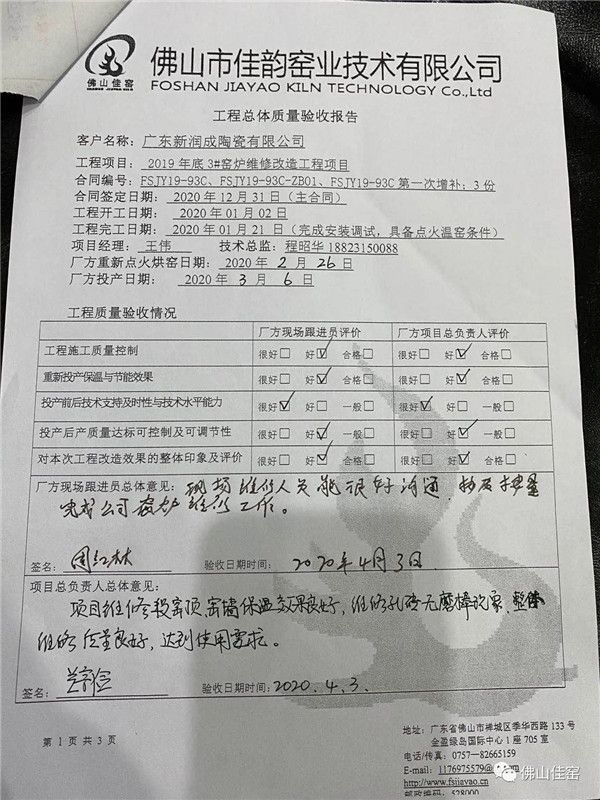 佛山佳窑
佛山市佳韵窑业技术有限公司
FOSHAN JIAYAO KILN TECHNOLOGY Co.,Ltd
工程总体质量验收报告
客户名称：广东新润成陶瓷有限公司
工程项目： 2019 年底 3#窑炉维修改造工程项目
合同编号：FSJY19-93C、FSJY19-93C-ZB01、FSJY19-93C 第一次增补；3 份
合同签定日期： 2020 年 12 月 31 日（主合同）
工程开工日期： 2020 年 01 月 02 日
工程完工日期： 2020 年 01 月 21 日（完成安装调试，具备点火温窑条件）
项目经理： 王伟 技术总监：程昭华 18823150088
厂方重新点火烘窑日期： 2020 年 2 月 26 日
厂方投产日期： 2020 年 3 月 6 日
工程质量验收情况
厂方现场跟进员评价 厂方项目总负责人评价
工程施工质量控制 很好□ 好☑ 合格□ 很好□ 好☑ 合格□
重新投产保温与节能效果 很好□ 好☑ 合格□ 很好□ 好☑ 合格□
投产前后技术支持及时性与技术水平能力 很好☑ 好□ 一般□ 很好☑ 好□ 一般□
投产后产质量达标可控制及可调节性 很好□ 好☑ 合格□ 很好□ 好☑ 合格□
对本次工程改造效果的整体印象及评价 很好□ 好☑ 合格□ 很好□ 好☑ 合格□
厂方现场跟进员总体意见：现场维修人员能很好沟通，
完成公司窑炉维修工作。
签名： 周红林 验收日期时间： 2020年4月3日
项目总负责人总体意见：
项目维修段窑顶、窑墙保温效果良好，维修孔砖无磨棒现象、整体
维修质量良好，达到使用需求。
签名： 验收日期时间：2020.4.3.
第 1 页 共 3 页
地址：广东省佛山市禅城区季华西路 133 号
金盈绿岛国际中心 1 座 705 室
电话/传真：0757—82665159
E-mail：1176975579@
http://www.fsjiayao.cn
邮政编码：528000
佛山佳窑